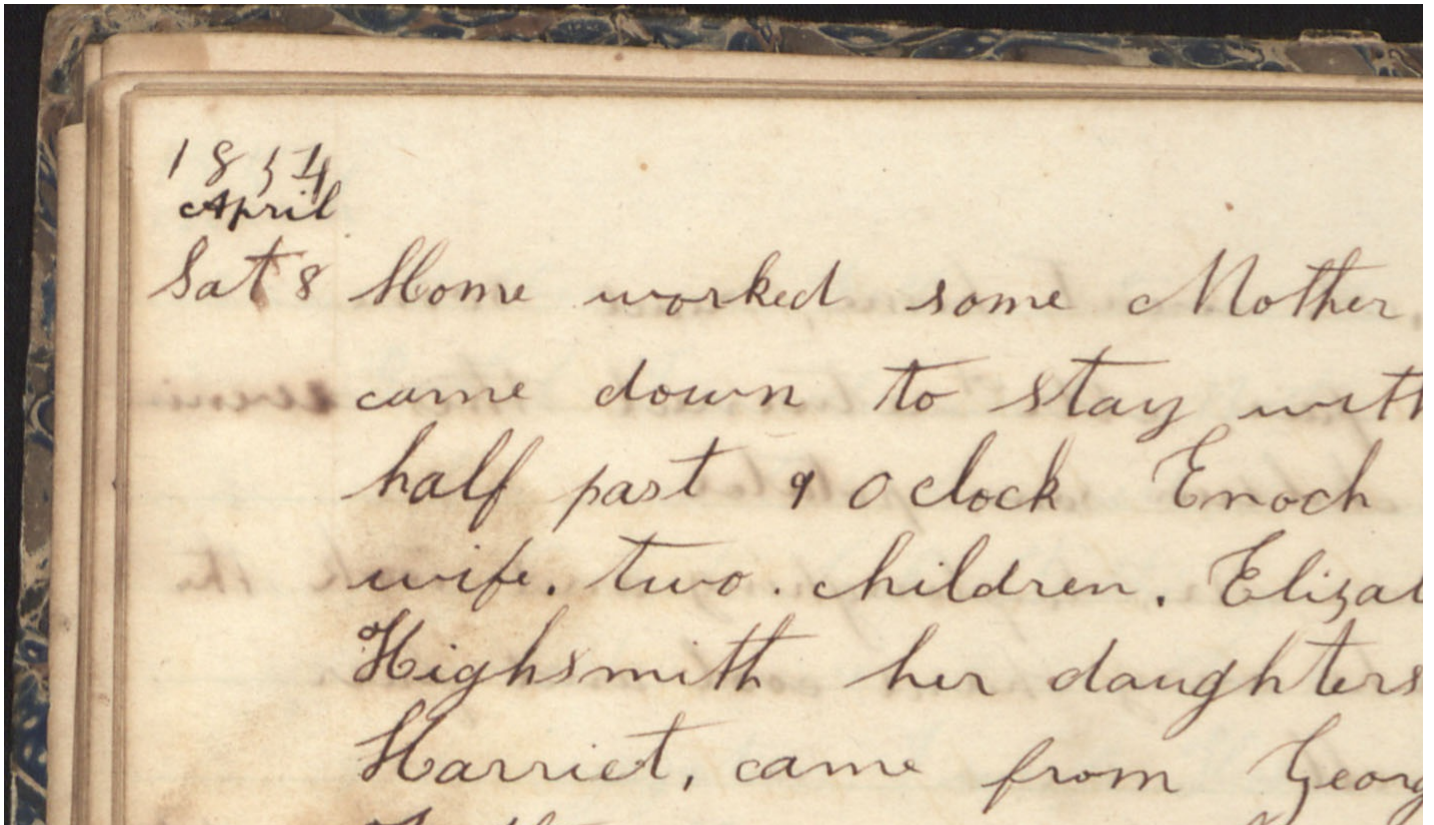 1854
April
Sat 8 Home worked some Mother.
came down to stay with
half past 9 O clock Enoch
wife. two. children. Elizab
Highsmith her daughters
Harriet, came from Georg